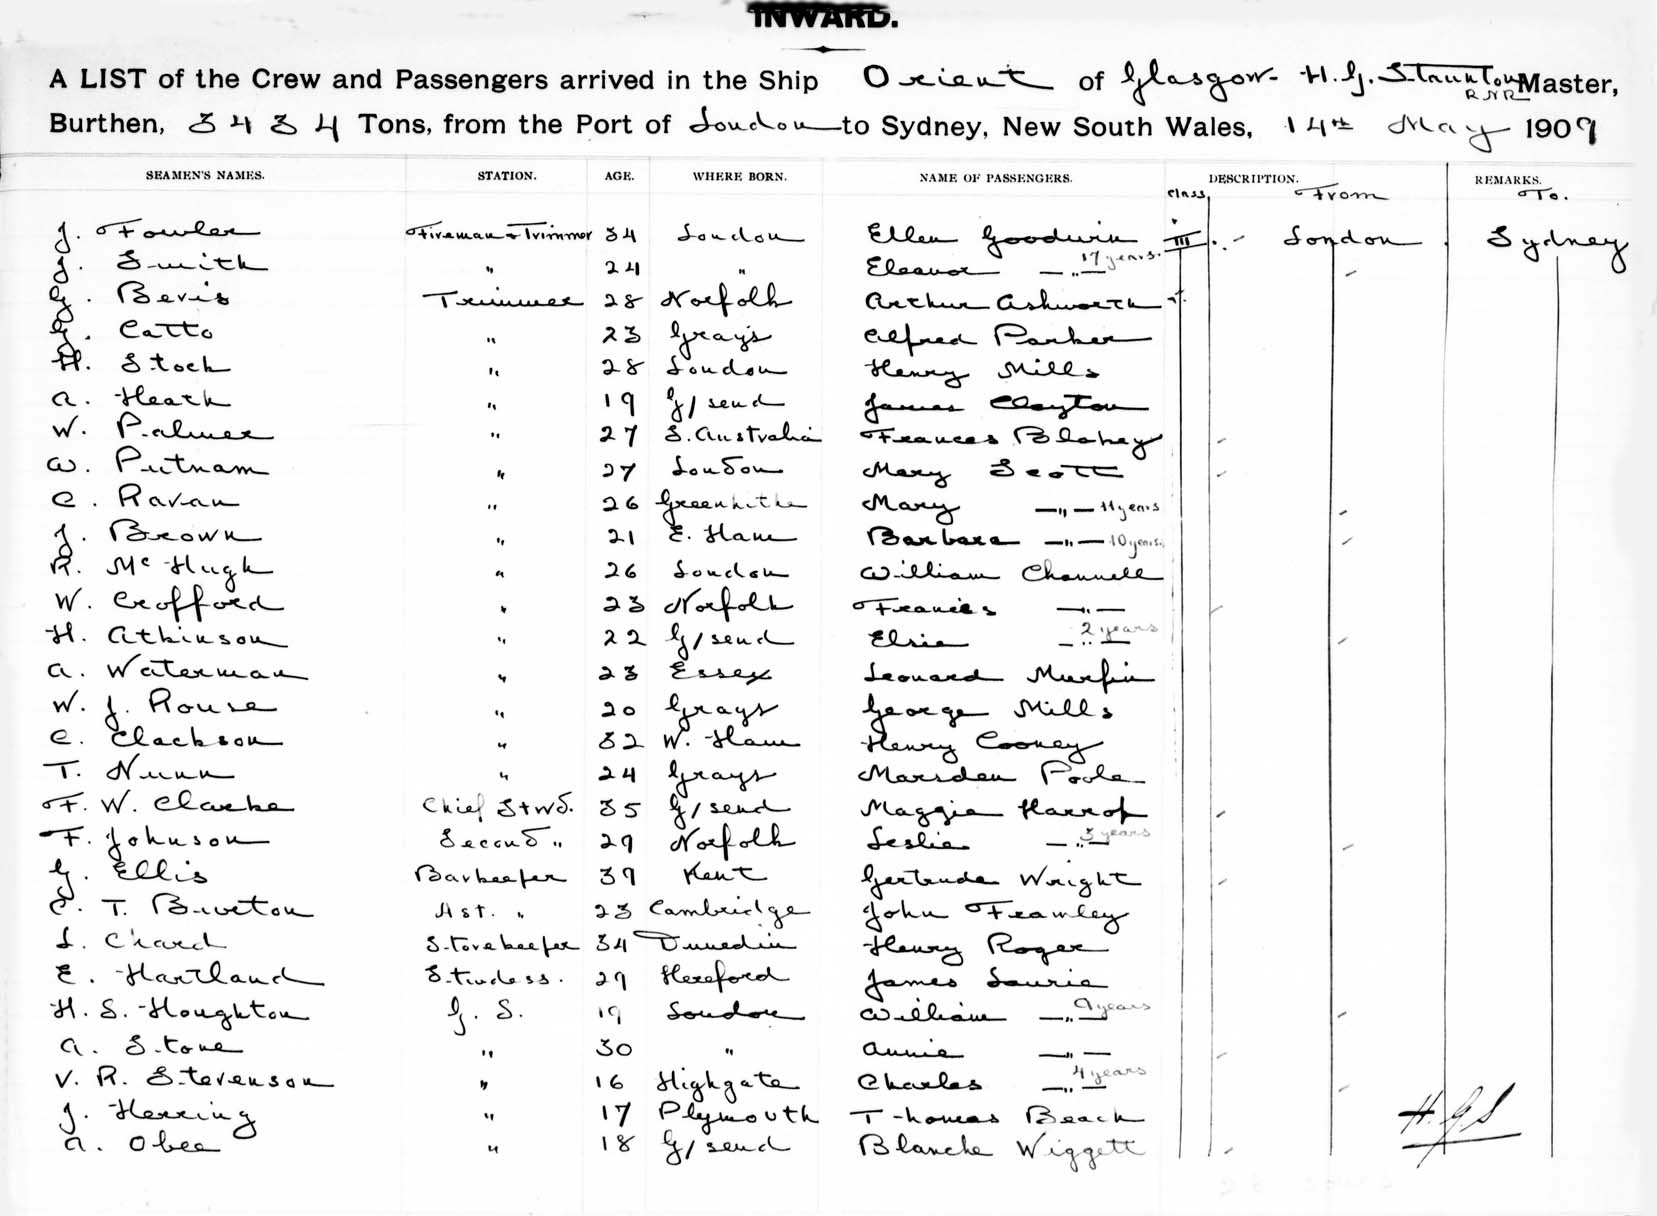 INWARD.
A LIST of the Crew and Passengers arrived in the Ship Orient of Glasgow H. G. Staunton RNR Master,
Burthen, 5454 Tons, from the Port of London to Sydney, New South Wales, 14th May 1909
SEAMEN'S NAMES. STATION. AGE. WHERE BORN. NAME OF PASSENGERS. DESCRIPTION. REMARKS.
Class From To.
J. Fowler Fireman + Trimmer 34 London Ellen Goodwin III London Sydney
J. Smith " 24 " Eleanor —"— 17 years.
G. Bevis Trimmer 28 Norfolk Arthur Ashworth
G. Catto " 23 Grays Alfred Parker
H. Stock " 28 London Henry Mills
A. Heath " 19 G/send James Clayton
W. Palmer " 27 S. Australia Frances Blakey
W. Putnam " 27 London Mary Scott
C. Ravan " 26 Greenhithe Mary —"— 11 years
J. Brown " 21 E. Ham Barbara —"— 10 years.
R. McHugh " 26 London William Channell
W. Crofford " 23 Norfolk Francis —"—
H. Atkinson " 22 G/send Elsie —"— 2 years
A. Waterman " 23 Essex Leonard Murfin
W. J. Rouse " 20 Grays George Mills
C. Clackson " 32 W. Ham Henry Cooney
T. Nunn " 24 Grays Marsden Poole
F. W. Clarke Chief Stwd. 35 G/send Maggie Harrop
F. Johnson Second " 29 Norfolk Leslie —"— 3 years
G. Ellis Barkeeper 39 Kent Gertrude Wright
C. T. Burton Ast. " 23 Cambridge John Frawley
L. Chard Storekeeper 34 Dunedin Henry Roger
E. Hartland Stwdess. 29 Hereford James Laurie
H. S. Houghton G. S. 19 London William —"— 9 years
A. Stone " 30 " Annie —"—
V. R. Stevenson " 16 Highgate Charles —"— 4 years
J. Herring " 17 Plymouth Thomas Beach H. G. S
A. Obee " 18 G/send Blanche Wiggett